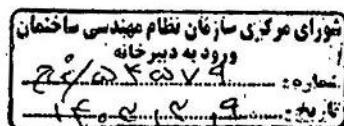 شورای مرکزی سازمان نظام مهندسی ساختمان
ورود به دبیرخانه
شماره: ۵۴۵۷۹/
تاریخ: